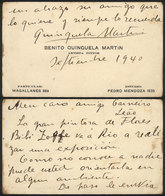 un abrazo su amigo que
lo quiere y siempre lo recuerda
Quinquela Martin
BENITO QUINQUELA MARTIN
ARTISTA PINTOR
Setiembre 1940
PARTICULAR:
MAGALLANES 889
ESTUDIO:
PEDRO MENDOZA 1835
Mi caro amigo Carneiro
Leão
La gran pintora de Flores
va a Rio a reali-
zar una exposición
Como no conoce a nadie
puede usted orientarla en
algun ambiente.
Lo pase le envia